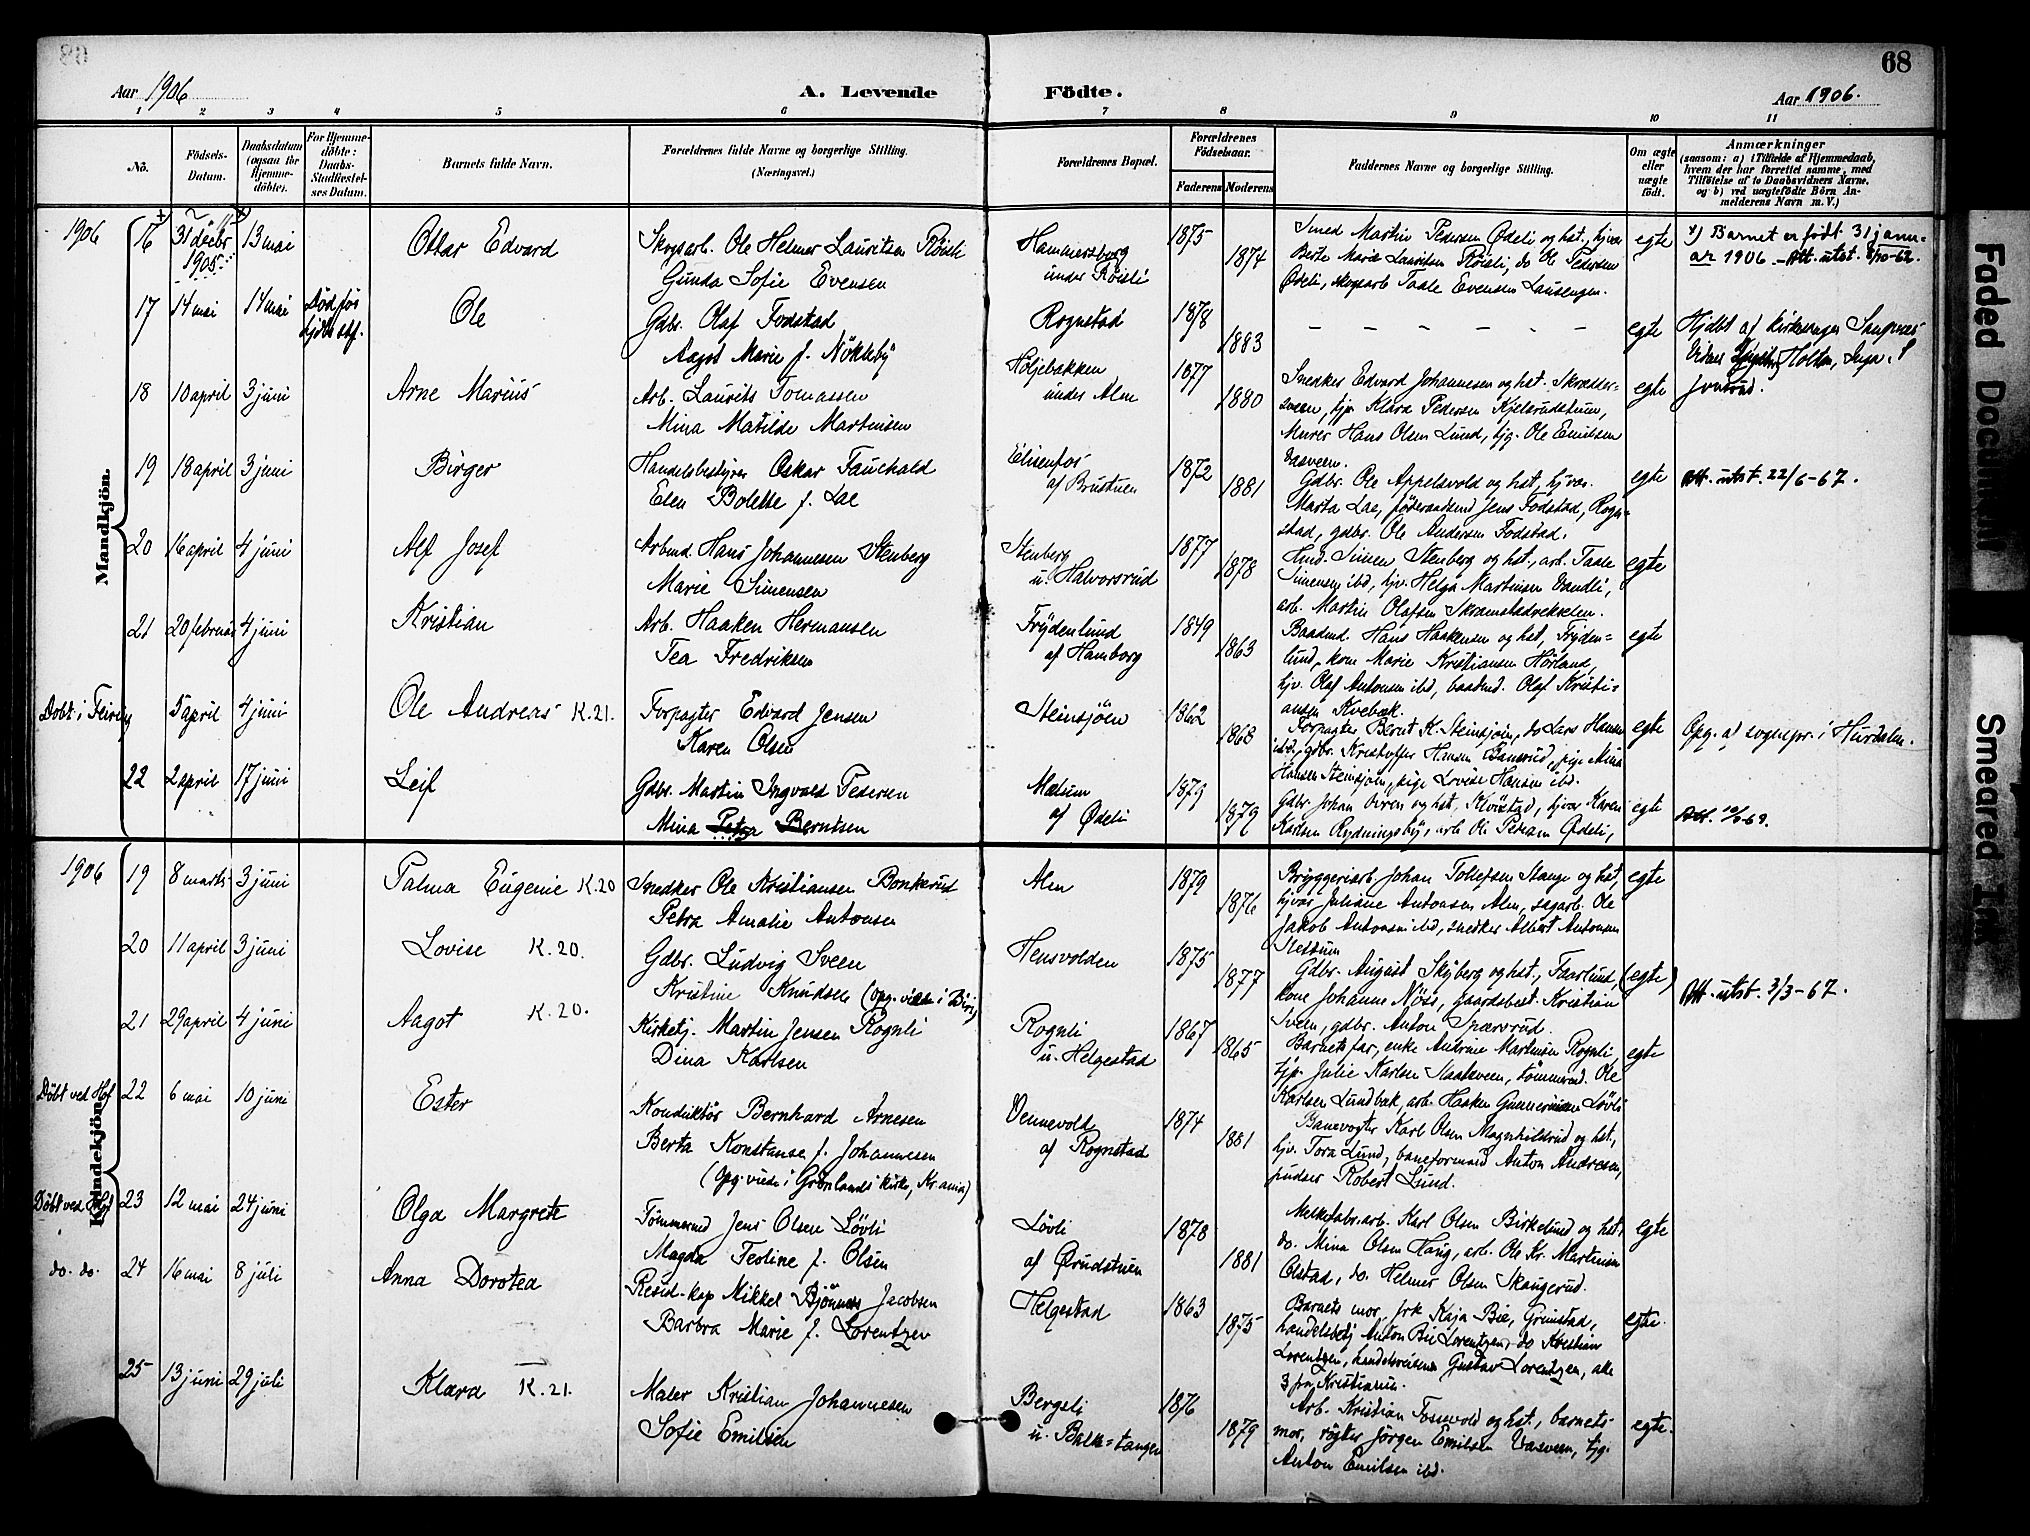 68
Aar 1906
A. Levende
Födte.
Aar 1906.
1 2 3 4 5 6 7 8 9 10 11
No.
Födsels-
Datum.
Daabsdatum
(ogsaa for
Hjemme-
döbte).
For Hjemme-
döbte:
Daabs-
Stadfæstel-
ses Datum.
Barnets fulde Navn.
Forældrenes fulde Navne og borgerlige Stilling.
(Næringsvei.)
Forældrenes Bopæl.
Forældrenes
Födselsaar.
Faderens
Moderens
Faddernes Navne og borgerlige Stilling.
Om ægte
eller
uægte
født.
Anmærkninger
(saasom: a) i Tilfælde af Hjemmedaab,
hvem der har forrettet samme, med
Tilføielse af to Daabsvidners Navne,
og b) ved uægtefødte Börn An-
melderens Navn m. V.)
Mandkjön.
1906
16
31 decbr
1905
13 mai
Ottar Edvard
Skogsarb. Ole Helmer Lauritsen Röisli
Gunda Sofie Evensen
Hammersborg
under Röisli
1875
1874
Smed Martin Pedersen Ödeli og hst., hjvar
Berte Marie Lauritsen Röisli, do Ole Pedersen
Ödeli, skogsarb Taale Evensen Lausengen.
egte
x) Barnet er födt 31 janu-
ar 1906. - Att. utst. 8/10-62.
17
14 mai
14 mai
Ole
Gdbr. Olaf Fodstad
Aagot Marie f. Nökleby
Rognstad
1878
1883
- - - - - -
egte
Hjdbt af kirkesanger
Holten, Inga
18
10 april
3 juni
Arne Marius
Arb. Laurits Tomassen
Mina Matilde Martinsen
Höljebakken
under Alm
1877
1880
Snedker Edvard Johannesen og hst. Skrædder-
sveen, tjp. Klara Pedersen Kjelsrudstuen,
Murer Hans Olsen Lund, tjg. Ole Emilsen
Vasveen.
egte
19
18 april
3 juni
Birger
Handelsbestyrer Oskar Fauchald
Elen Bolette f. Lae
Elisenfos
af Brustuen
1872
1881
Gdbr. Ole Appelsvold og hst, hjvar.
Marta Lae, föderaadsmd Jens Fodstad, Rogn-
stad, gdbr. Ole Andersen Fodstad.
egte
Att. utst. 22/6-67.
20
16 april
4 juni
Alf Josef
Arbmd. Hans Johannesen Stenberg
Marie Simensen
Stenberg
u. Halvorsrud
1877
1878
Hmd. Simen Stenberg og hst., arb. Taale
Simensen ibd, hjv. Helga Martinsen Sandli,
arb. Martin Olafsen Skramstadvekselen.
egte
21
20 februar
4 juni
Kristian
Arb. Haaken Hermansen
Tea Fredriksen
Frydenlund
af Hamborg
1849
1863
Baadmd. Hans Haakensen og hst, Fryden-
lund, kone Marie Kristiansen Hörland,
hjv. Olaf Antonsen ibd, baadmd. Olaf Kristi-
ansen Kvebæk.
egte
Döbt i Feiring
5 april
4 juni
Ole Andreas K. 21.
Forpagter Edvard Jensen
Karen Olsen
Steinsjöen
1862
1868
Forpagter Bernt K. Steinsjöen, do Lars Hansen
ibd, gdbr. Kristoffer Hansen, pige Mina
Hansen Steinsjöen, pige Lovise Hansen ibd.
egte
Opg. af sognepr. i Hurdalen.
22
2 april
17 juni
Leif
Gdbr. Martin Ingvald Pedersen
Mina Petra Berntsen
Mælum
af Ödeli
1879
1879
Gdbr. Johan Ovren og hst, Kvistad, hjvar Karen
Karlsen Rydningsby, arb Ole Pedersen Ödeli,
egte
Kvindekjön.
1906
19
8 marts
3 juni
Palma Eugenie K. 20
Snedker Ole Kristiansen Bonkerud
Petra Amalie Antonsen
Alm
1879
1876
Bryggeriarb. Johan Tollefsen Stange og hst,
hjvar Juliane Antonsen Alm, sagarb. Ole
Jakob Antonsen ibd, snedker Albert Antonsen
egte
20
11 april
3 juni
Lovise K. 20.
Gdbr. Ludvig Sveen
Kristine Knudsen (opg. viede i Biri)
Hensvolden
1875
1877
Gdbr. August Skyberg og hst, Faarlund,
kone Johanne Nöss, gaardsbest. Kristian
Sveen, gdbr. Anton Spærsrud.
(egte)
Att. utst. 3/3-67.
21
29 april
4 juni
Aagot K. 20.
Kirketj. Martin Jensen Rognli
Dina Karlsen
Rognli
u. Helgestad
1867
1865
Barnets far, enke Andrine Martinsen Rognli,
tjp. Julie Karlsen, tömmermd. Ole
Karlsen Lundbæk, arb. Haaken Gunnersen Lövli
egte
Döbt ved Hof
22
6 mai
10 juni
Ester
Konduktör Bernhard Arnesen
Berta Konstanse f. Johannesen
(opg. viede i Grönlands kirke, Kr.ania)
Vennevold
af Rognstad
1874
1881
Banevogter Karl Olsen Magnhildrud og hst,
hjv. Tora Lund, baneformand Anton Andresen,
pudser Robert Lund.
Döbt ved Hof
23
12 mai
24 juni
Olga Margrete
Tömmermd Jens Olsen Lövli
Magda Teoline f. Olsen
Lövli
af Örudstuen
1878
1881
Melkefabr.arb. Karl Olsen Birkelund og hst,
do. Mina Olsen Haug, arb. Ole Kr. Martinsen
Olstad, do. Helmer Olsen Skaugerud.
egte
do. do.
24
16 mai
8 juli
Anna Dorotea
Resid. kap Mikkel Bjönnes Jacobsen
Barbra Marie f. Lorentzen
Helgestad
1863
1875
Barnets mor, frk Kaja Bie, Grimstad,
handelsbetj Anton Bie Lorentzen, do Kristian
Lorentzen, handelsreisende Gustav Lorentzen, alle
3 fra Kristiania.
egte.
25
13 juni
29 juli
Klara K. 21.
Maler Kristian Johannesen
Sofie Emilsen
Bergeli
u. Balke-tangen
1876
1879
Arb. Kristian Tosevold og hst., barnets-
mor, røgter Jörgen Emilsen Vasveen, tjg.
Anton Emilsen ibd.
egte.
Faded Document
Smeared Ink